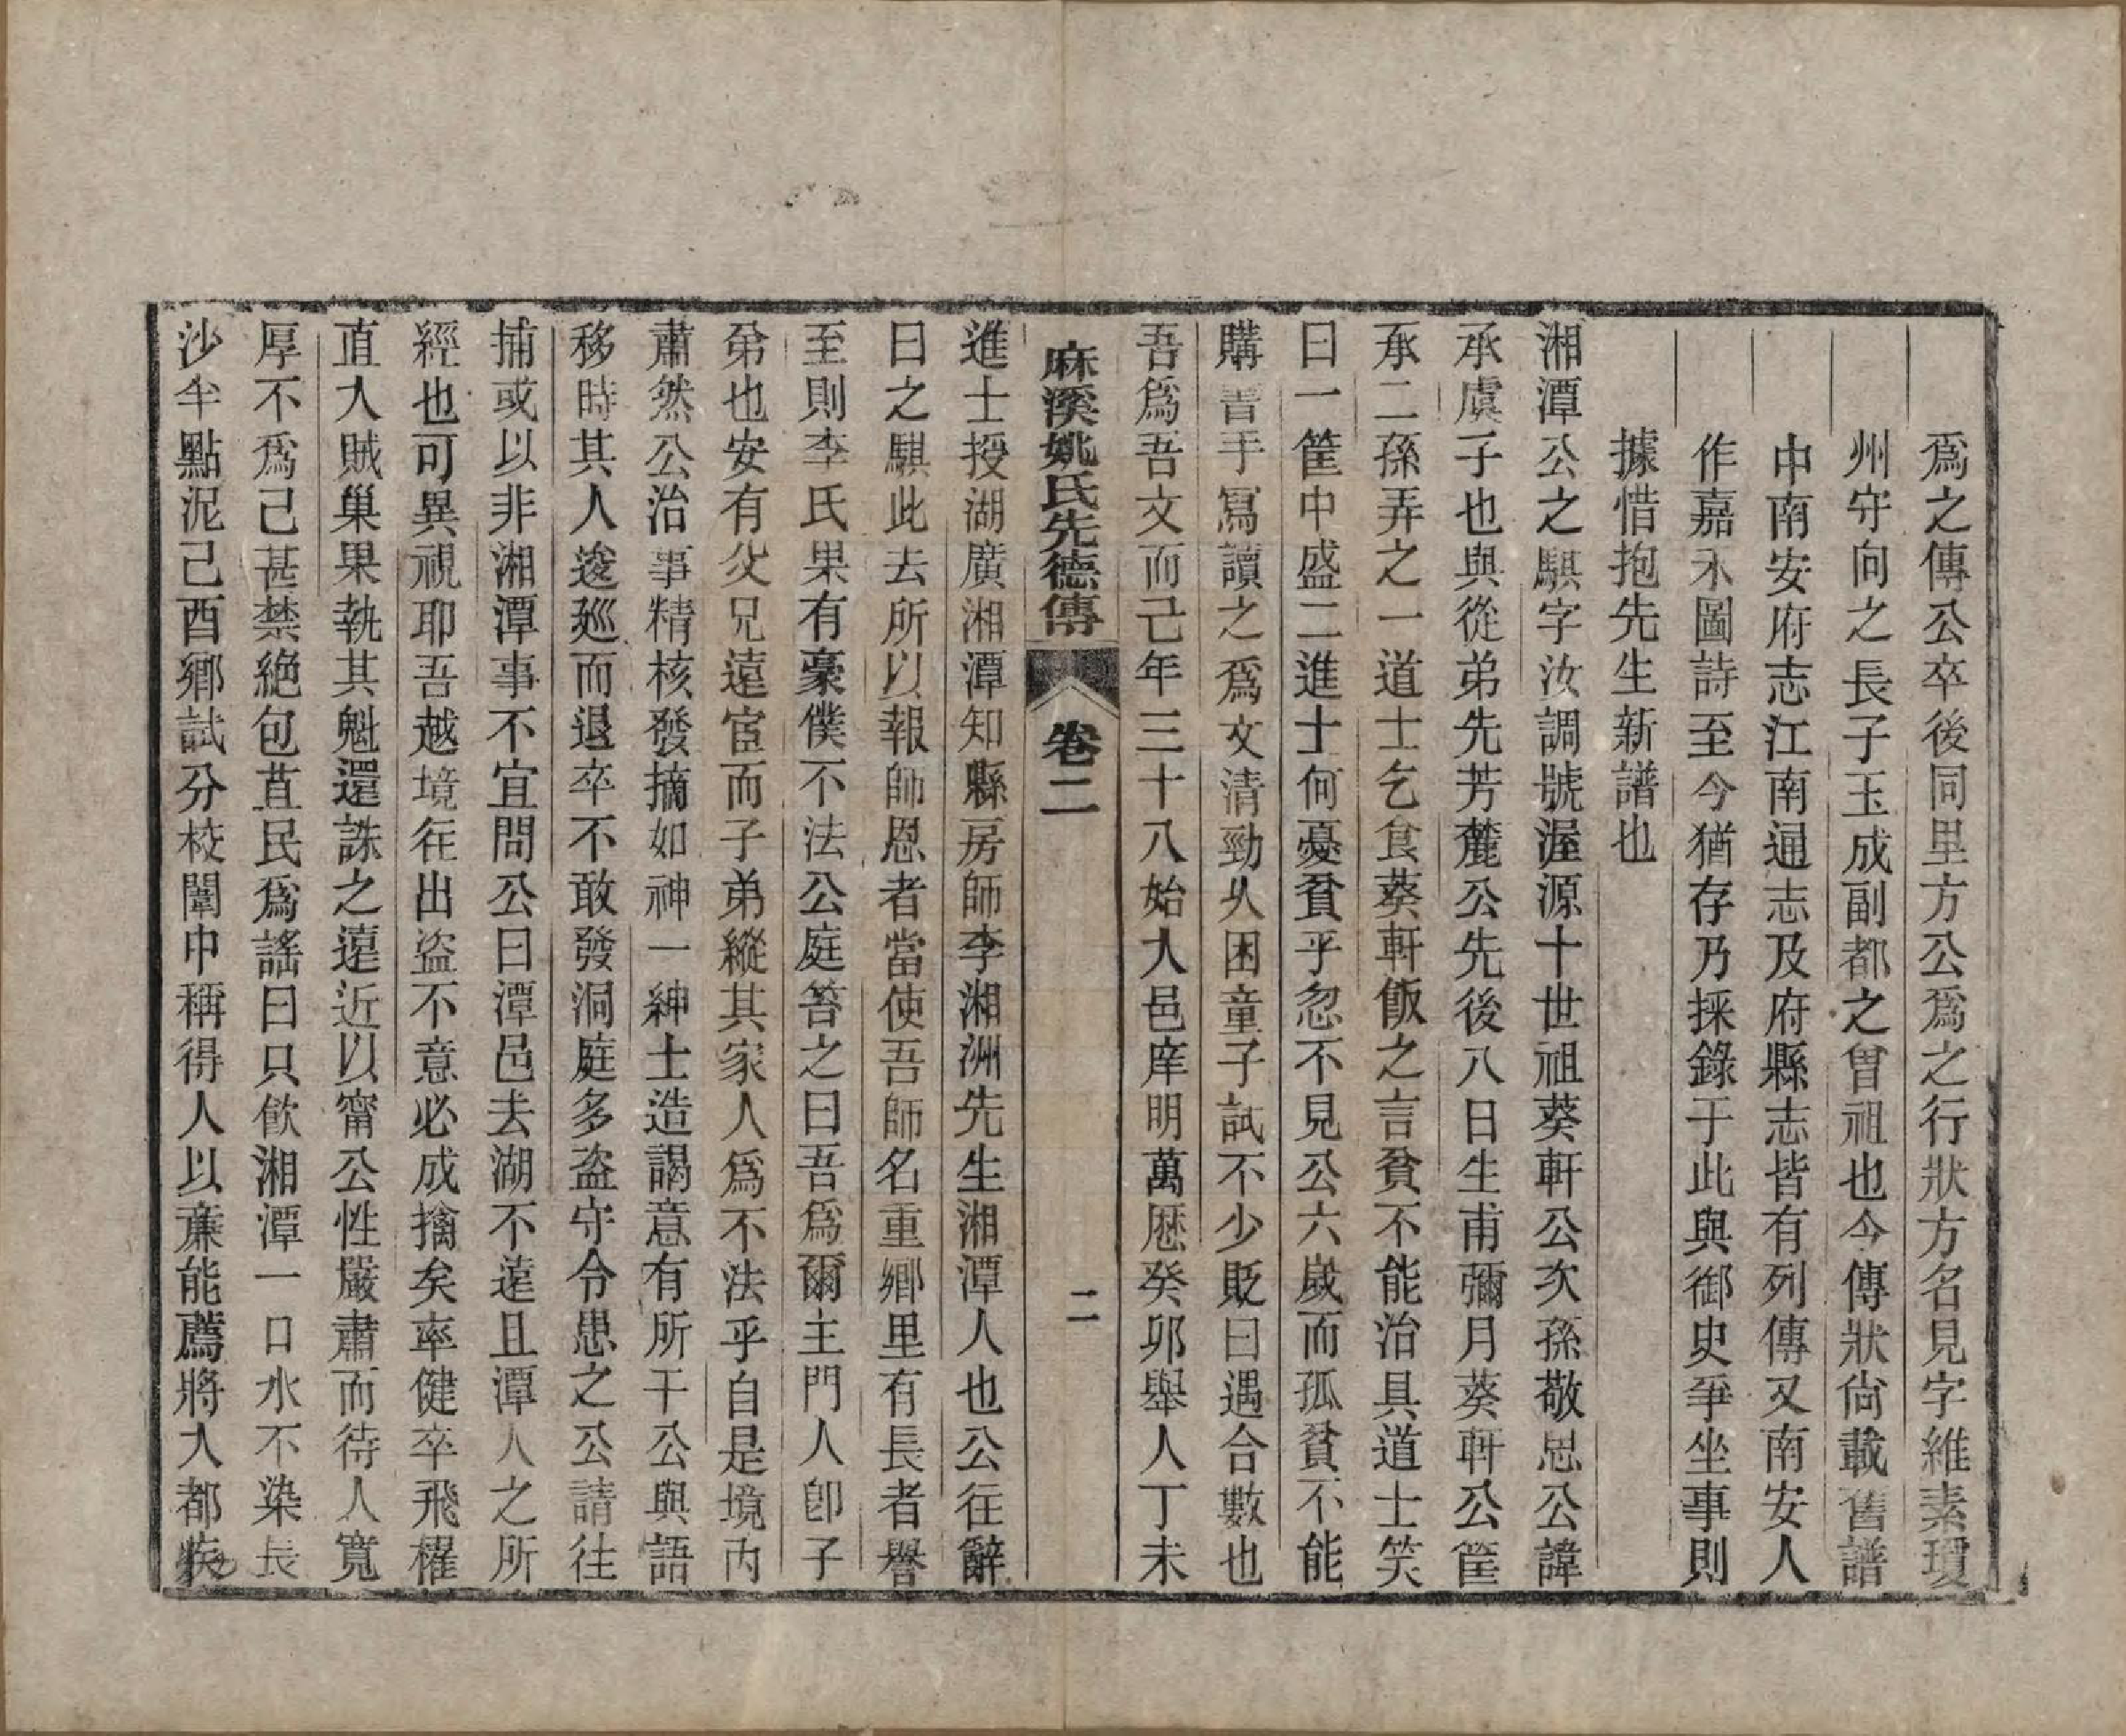 爲之傳公卒後同里方公爲之行狀方名見字維素瓊
州守向之長子玉成副都之曾祖也今傳狀尙載舊譜
中南安府志江南通志及府縣志皆有列傳又南安人
作嘉禾圖詩至今猶存乃採錄于此與御史爭坐事則
據惜抱先生新譜也
湘潭公之騏字汝調號渥源十世祖葵軒公次孫敬思公諱
承虞子也與從弟先芳麓公先後八日生甫彌月葵軒公筐
承二孫弄之一道士乞食葵軒飯之言貧不能治具道士笑
曰一筐中盛二進士何憂貧乎忽不見公六歲而孤貧不能
購書手寫讀之爲文清勁久困童子試不少貶曰遇合數也
吾爲吾文而已年三十八始入邑庠明萬厯癸卯舉人丁未
麻溪姚氏先德傳 卷二 二
進士授湖廣湘潭知縣房師李湘洲先生湘潭人也公往辭
曰之騏此去所以報師恩者當使吾師名重鄉里有長者譽
至則李氏果有豪僕不法公庭笞之曰吾爲爾主門人卽子
弟也安有父兄遠宦而子弟縱其家人爲不法乎自是境內
肅然公治事精核發摘如神一紳士造謁意有所干公與語
移時其人逡廵而退卒不敢發洞庭多盜守令患之公請往
捕或以非湘潭事不宜問公曰潭邑去湖不遠且潭人之所
經也可異視耶吾越境往出盜不意必成擒矣率健卒飛櫂
直入賊巢果執其魁還誅之遠近以甯公性嚴肅而待人寬
厚不爲己甚禁絕包苴民爲謠曰只飮湘潭一口水不染長
沙半點泥己酉鄉試分校闈中稱得人以廉能薦將入都疾